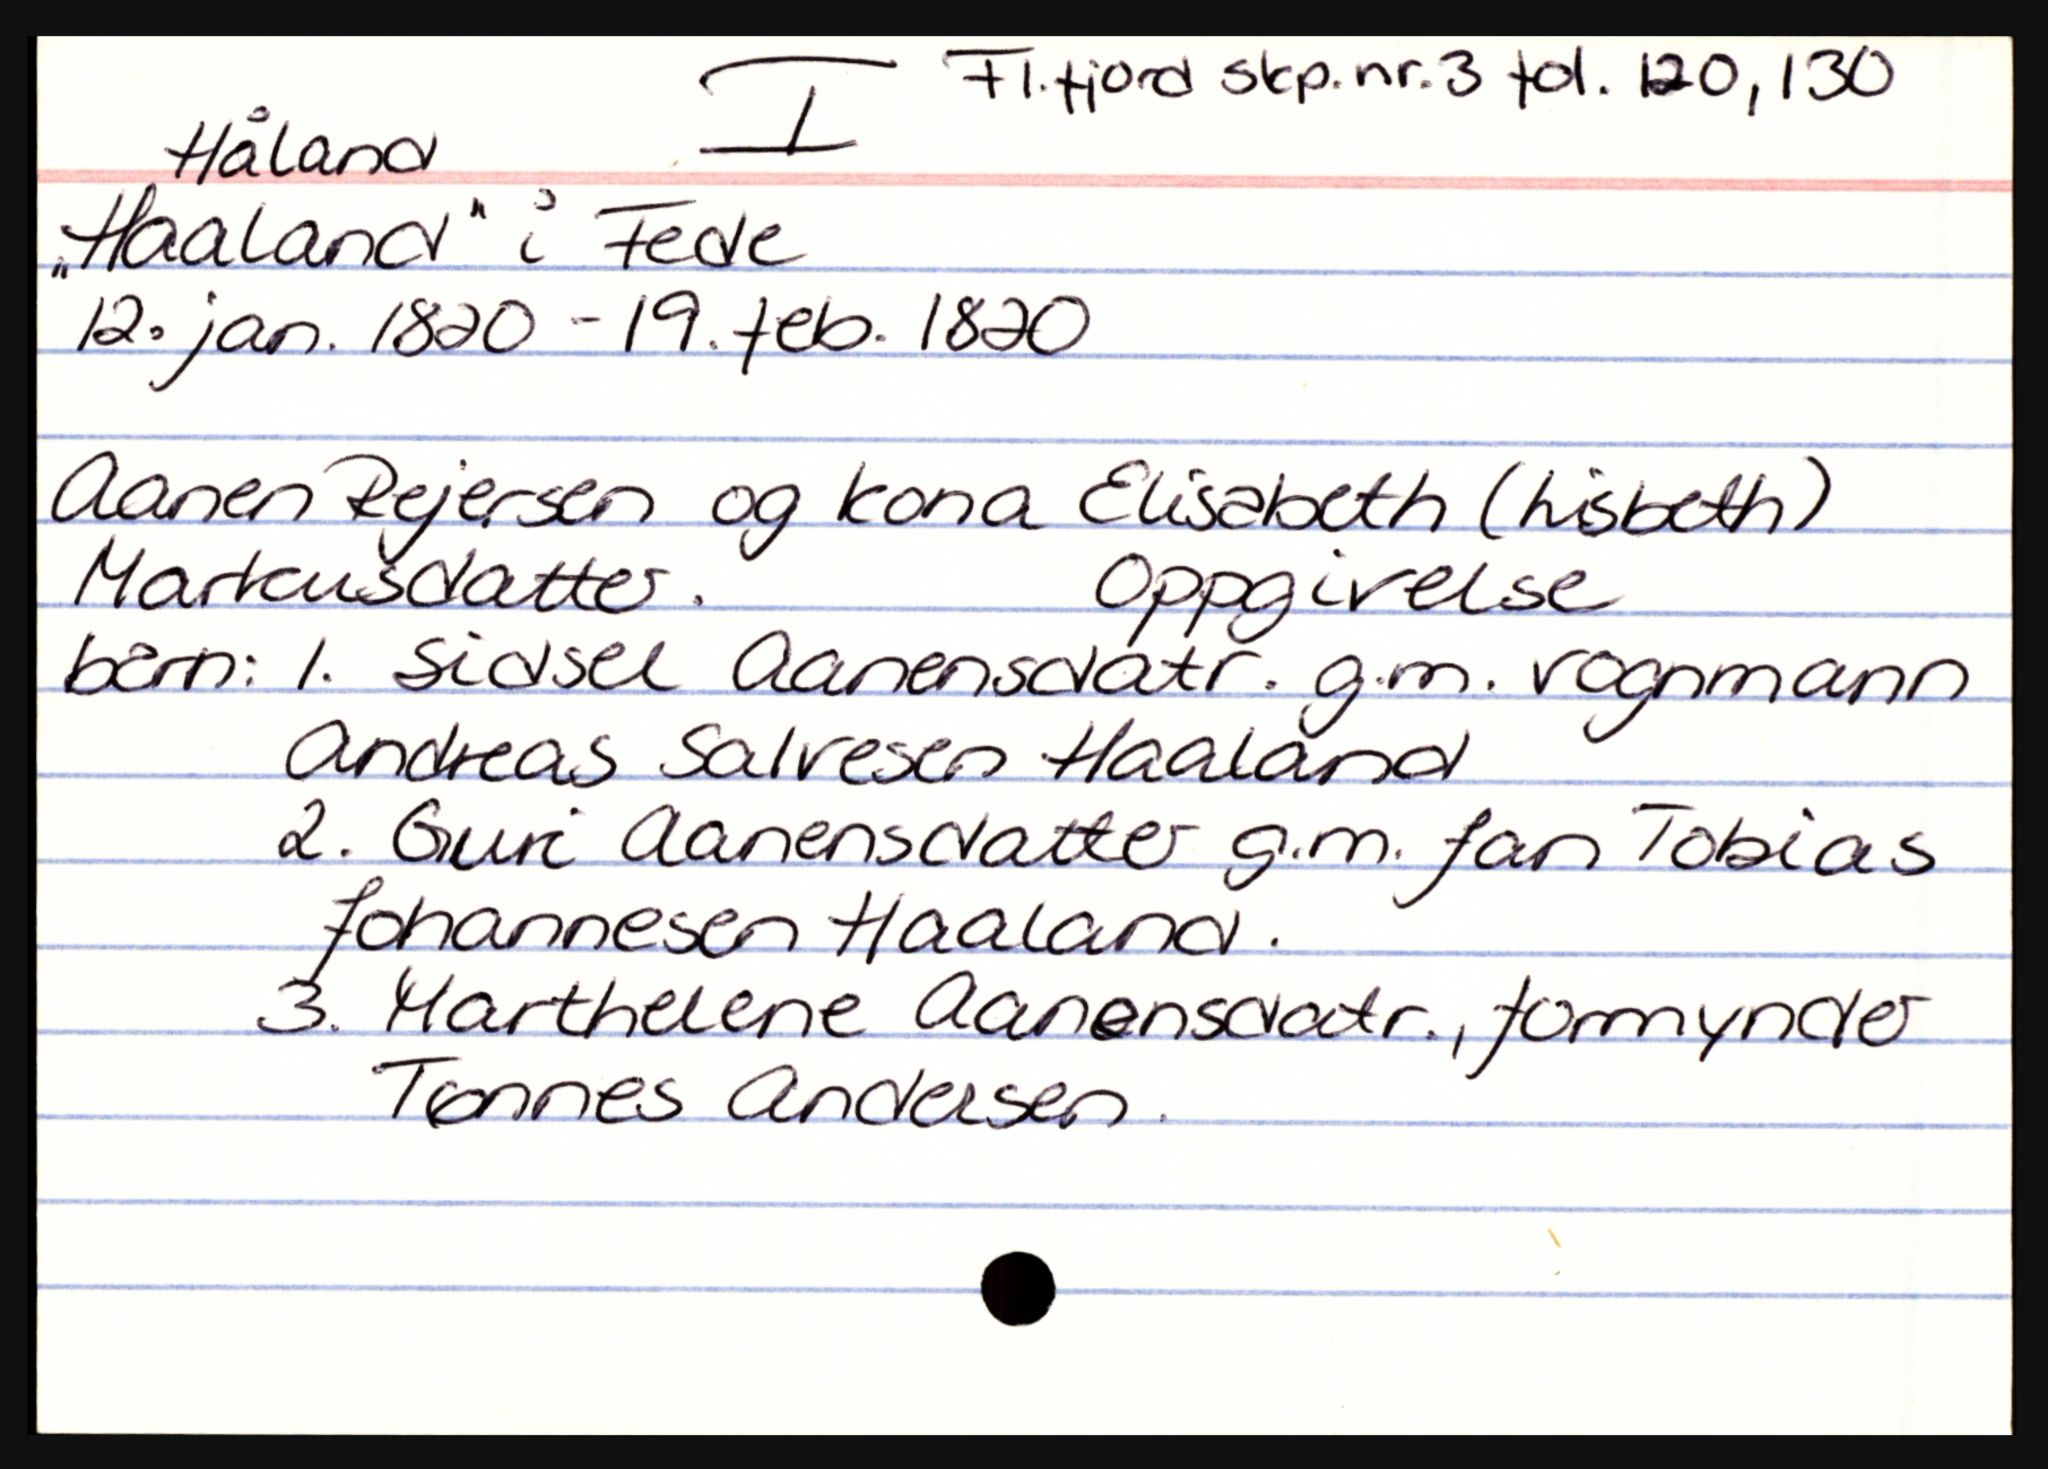 I Fl.fjord skp.nr.3 fol. 120, 130
Håland
„Haaland" i Fede
12. jan. 1820 - 19. feb. 1820
Aanen Rejersen og kona Elisabeth (Lisbeth)
Markusdatter. Oppgivelse
barn: 1. Sidsel Aanensdatr. g.m. vognmann
Andreas Salvesen Haaland
2. Guri Aanensdatter g.m. Jan Tobias
Johannesen Haaland.
3. Marthelene Aanensdatr., formynder
Tønnes Andersen.